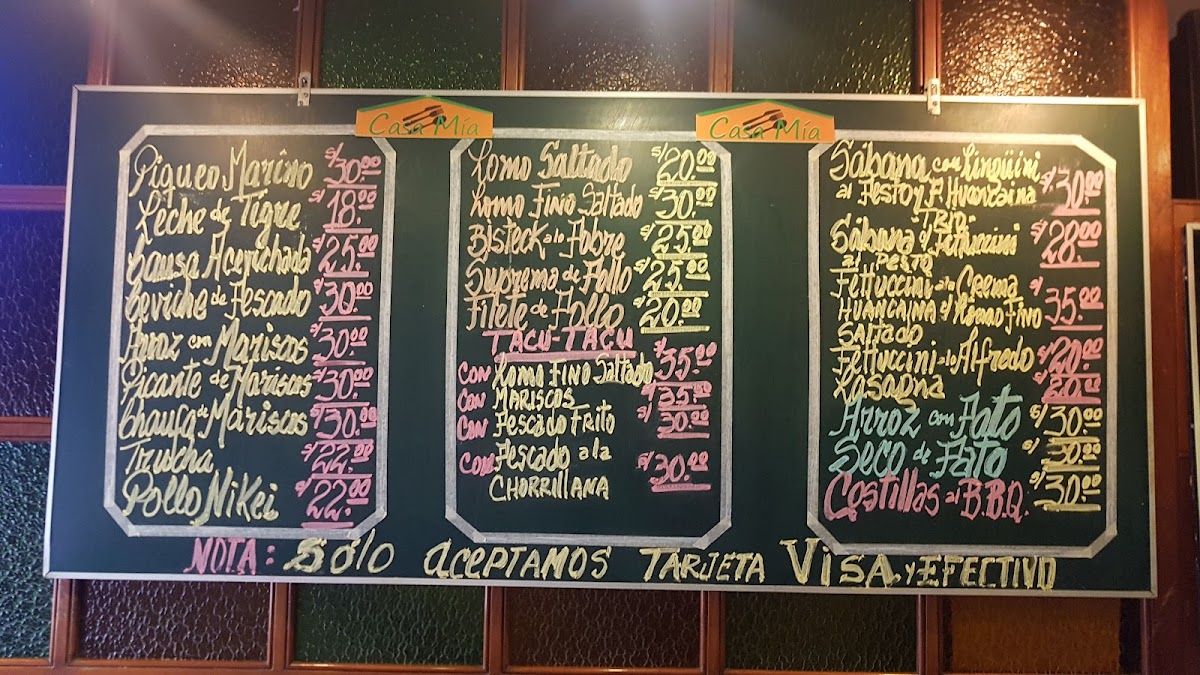 Casa Mía
Casa Mía
Piqueo Marino S/30.00
Leche de Tigue S/18.00
Causa Acevichada S/25.00
Ceviche de Pescado S/30.00
Arroz con Mariscos S/30.00
Picante de Mariscos S/30.00
Chaufa de Mariscos S/30.00
Trucha S/22.00
Pollo Nikei S/22.00
Lomo Saltado S/20.00
Lomo Fino Saltado S/30.00
Bisteck a lo Pobre S/25.00
Suprema de Pollo S/25.00
Filete de Pollo S/20.00
TACU-TACU
CON Lomo Fino Saltado S/35.00
CON MARISCOS S/35.00
CON Pescado Frito S/30.00
CON Pescado a la S/30.00
CHORRILLANA
Sábana con Lingüini
al Pesto y F. Huancaina S/30.00
"TRIO"
Sábana c/ Fettuccini S/28.00
al Pesto
Fettuccini a la Crema
HUANCAINA c/ Lomo Fino S/35.00
SALTADO
Fettuccini a lo Alfredo S/20.00
Lasagna S/20.00
Arroz con Pato S/30.00
Seco de Pato S/30.00
Costillas al B.B.Q. S/30.00
NOTA: Sólo ACEPTAMOS TARJETA VISA y EFECTIVO